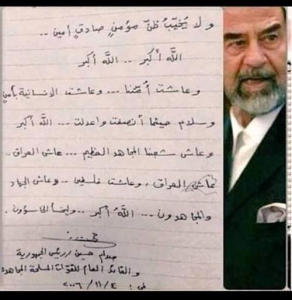 ولا يُخيّبُ ظنّ مؤمنٍ صادقٍ أمين ..
اللّه أكبر .. اللّه أكبر
وعاشت أمتنا ... وعاشت الانسانية بأمنٍ
وسلام حيثما أنصفت واعدلت ... اللّه أكبر
وعاش شعبنا المجاهد العظيم ... عاش العراق
عاش العراق، وعاشت فلسطين .. وعاش الجهاد
والمجاهدون ... اللّه أكبر ..
صدام حسين رئيس الجمهورية
والقائد العام للقوات المسلحة المجاهدة